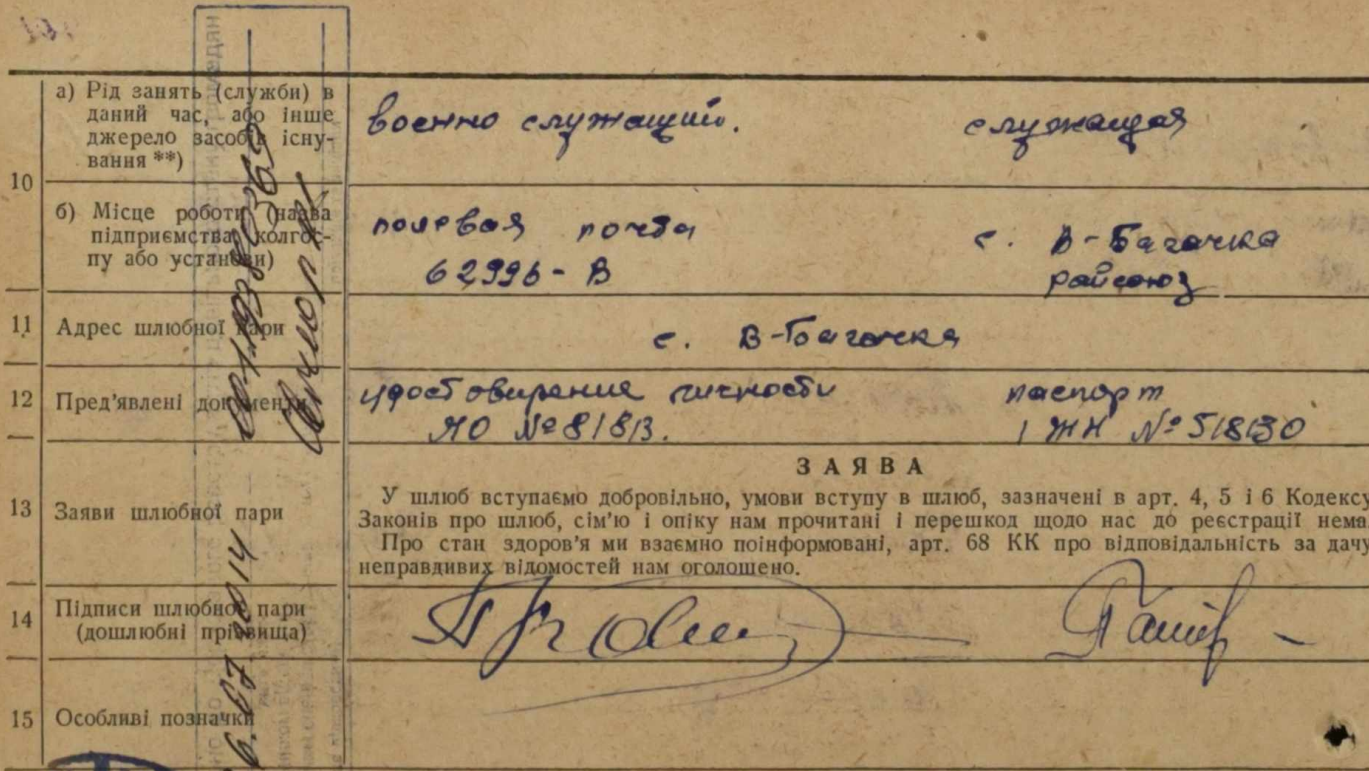 10
а) Рід занять (служби) в
даний час, або інше
джерело засобів існу-
вання **)
военно служащий.
служащая
б) Місце роботи (назва
підприємства, колгос-
пу або установи)
полевая почта
62996 - В
с. В-Багачка
райсоюз
11
Адрес шлюбної пари
с. В-Багачка
12
Пред'явлені документи
удостовирение личности
ЯО № 81813.
паспорт
I ЖН № 518130
13
Заяви шлюбної пари
ЗАЯВА
У шлюб вступаємо добровільно, умови вступу в шлюб, зазначені в арт. 4, 5 і 6 Кодексу
Законів про шлюб, сім'ю і опіку нам прочитані і перешкод щодо нас до реєстрації нема.
Про стан здоров'я ми взаємно поінформовані, арт. 68 КК про відповідальність за дачу
неправдивих відомостей нам оголошено.
14
Підписи шлюбної пари
(дошлюбні прізвища)
15
Особливі позначки